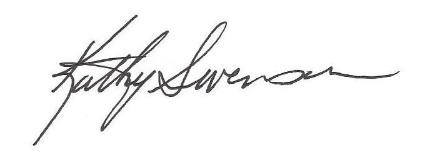 Kathy Swenson